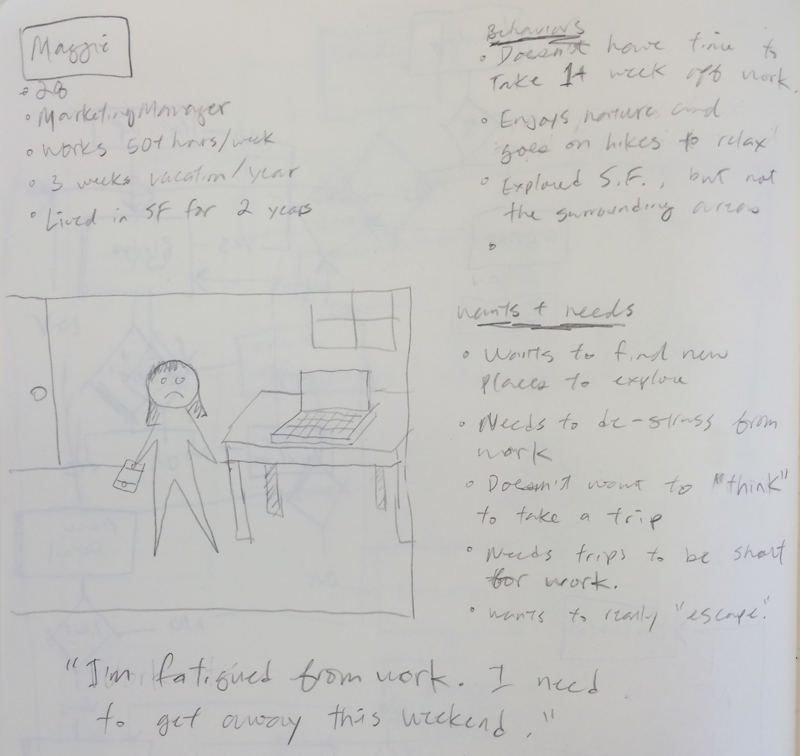 Maggie
• 28
• Marketing Manager
• Works 50+ hours/week
• 3 weeks vacation/year
• Lived in SF for 2 years
Behaviors
• Doesn't have time to
take 1+ week off work.
• Enjoys nature and
goes on hikes to relax
• Explored S.F., but not
the surrounding areas
•
Wants + needs
• Wants to find new
places to explore
• Needs to de-stress from
work
• Doesn't want to "think"
to take a trip
• Needs trips to be short
for work.
• Wants to really "escape."
"I'm fatigued from work. I need
to get away this weekend."